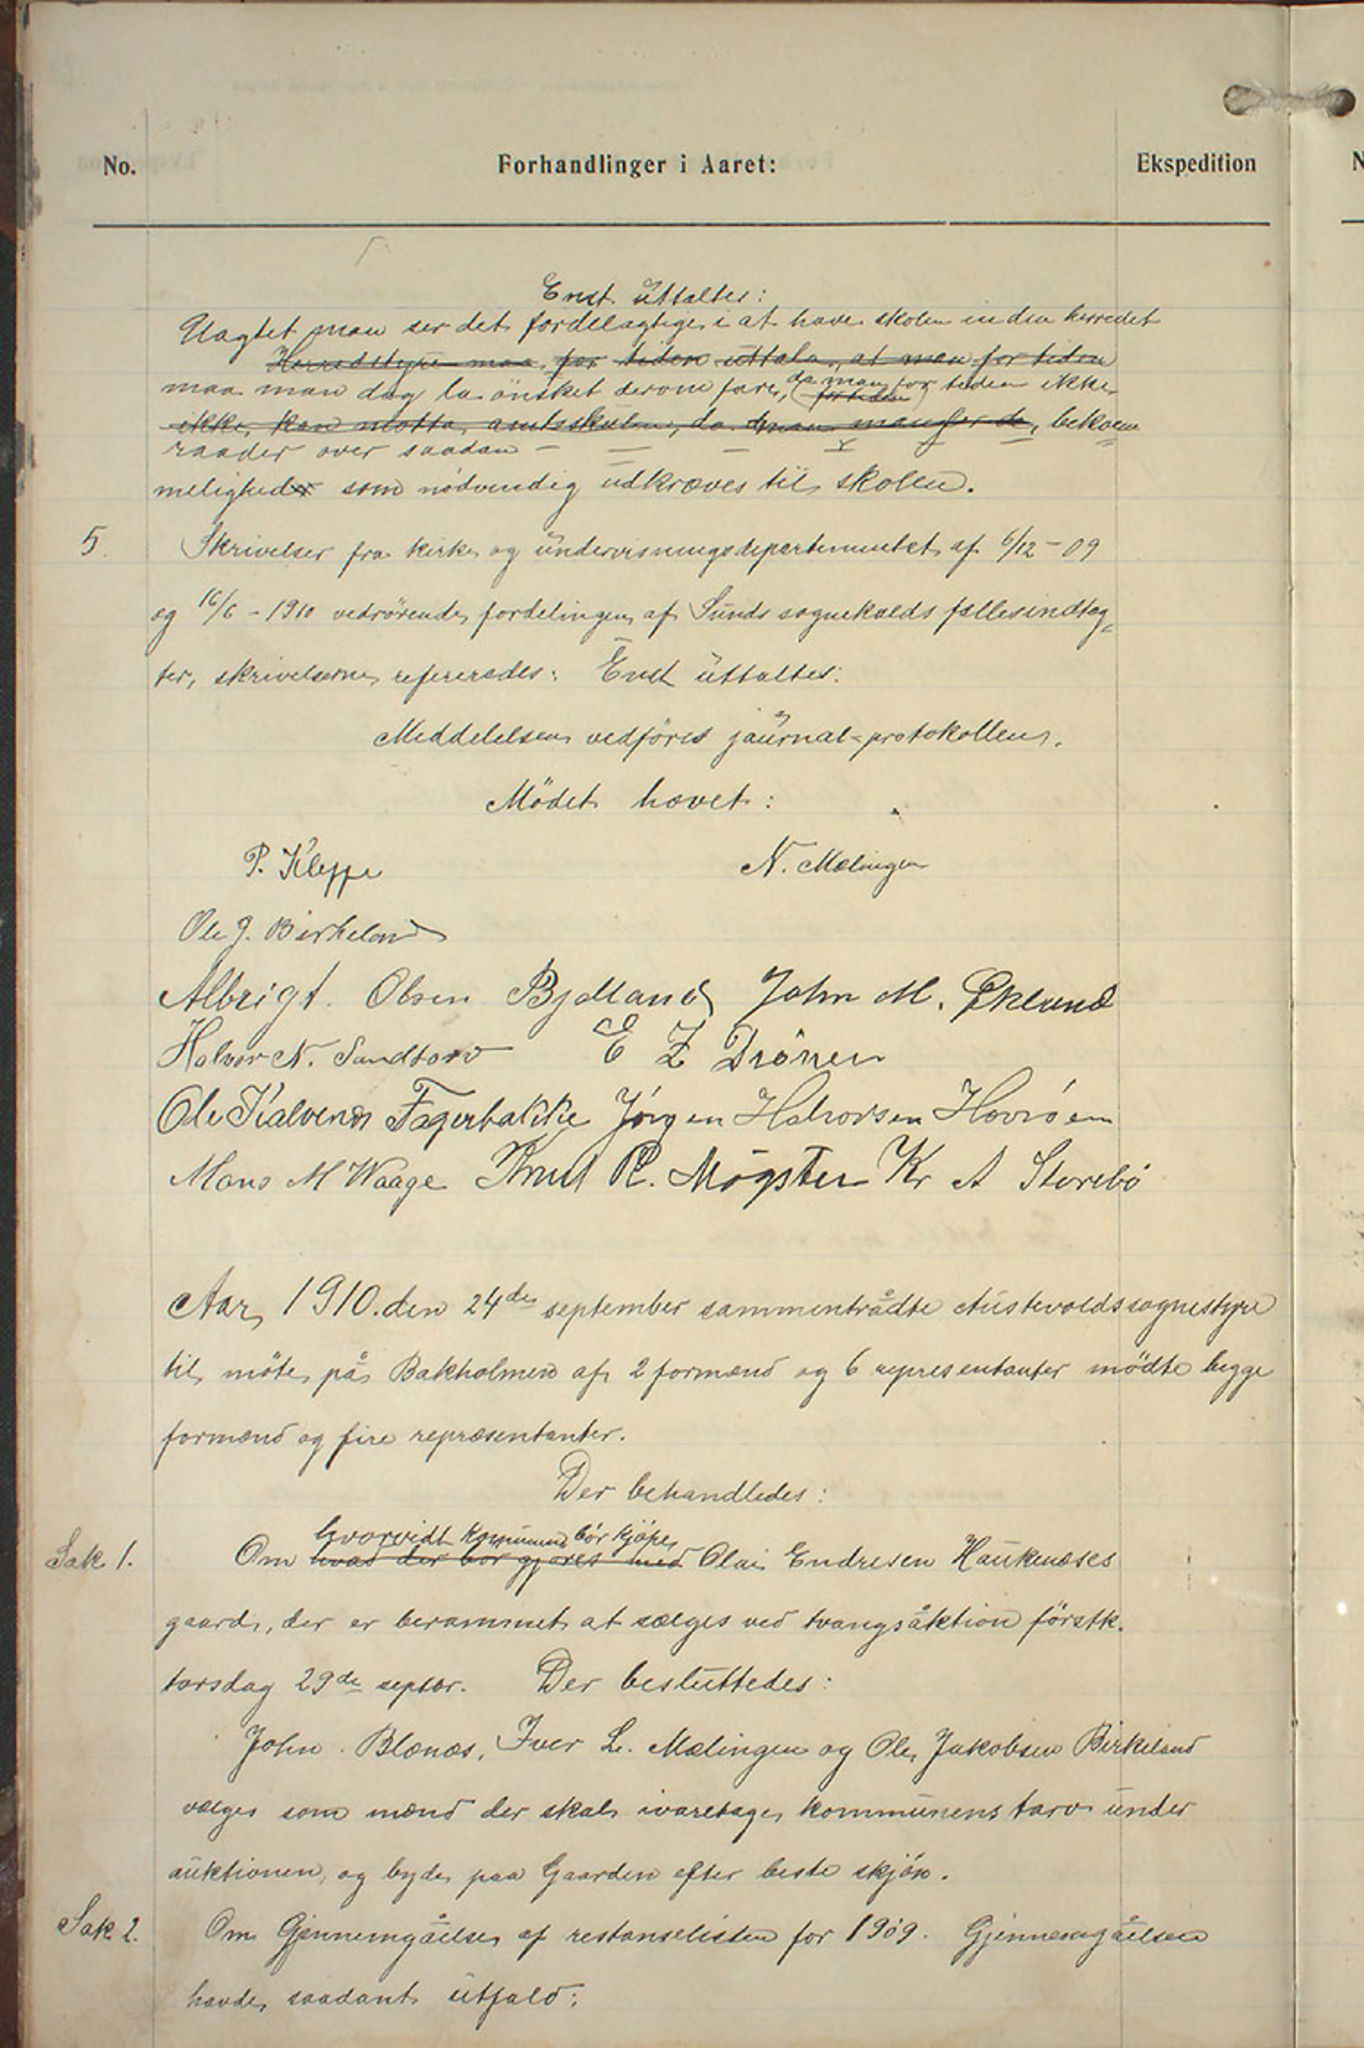 No. Forhandlinger i Aaret: Ekspedition N
Enst. uttaltes:
Uagtet man ser det fordelagtige i at have skolen inden herredet
Herredstyre maa for tiden uttale, at man for tiden
maa man dog la ønsket derom fare, da man for tiden ikke
for tiden
ikke kan motta amtsskolen, da man for de bekvem
raader over saadan
meligheder som nödvendig udkræves til skolen.
5. Skrivelser fra kirke og undervisningsdepartementet af 6/12 - 09
og 16/6 - 1910 vedrörende fordelingen af Sunds sognekalds fællesindtæg-
ter, skrivelserne refereredes: Enst uttaltes:
Meddelelsen vedföres jaurnal-protokollen.
Mödet hævet:
P. Kleppe N. Mælingen
Ole J. Birkeland
Albrigt. Olsen Bjelland John M. Øklund
Halvor N. Sandtorv E Z Drönen
Ole Kalvenes Fagerbakke Jörgen Halvorsen Hovröen
Mons M Waage Knut R. Møgster Kr A Storebö
Aar 1910. den 24de september sammentrådte Austevoldssognestyre
til möte på Bakholmen af 2 formænd og 6 representanter mödte begge
formænd og fire repræsentanter.
Der behandledes:
hvorvidt kommunen bör kjöpe
Sak 1. Om hvad der bör gjøres med Olai Endresen Haukenæses
gaard, der er berammet at sælges ved tvangsåktion förstk.
torsdag 29de septbr. Der besluttedes:
John Blænæs, Iver L. Mælingen og Ole Jakobsen Birkeland
vælges som mænd der skal ivaretage kommunens tarv under
auktionen, og byde paa Gaarden efter beste skjön.
Sak 2. Om Gjennemgåelse af restanselisten for 1909. Gjennemgåelsen
havde saadant utfald: